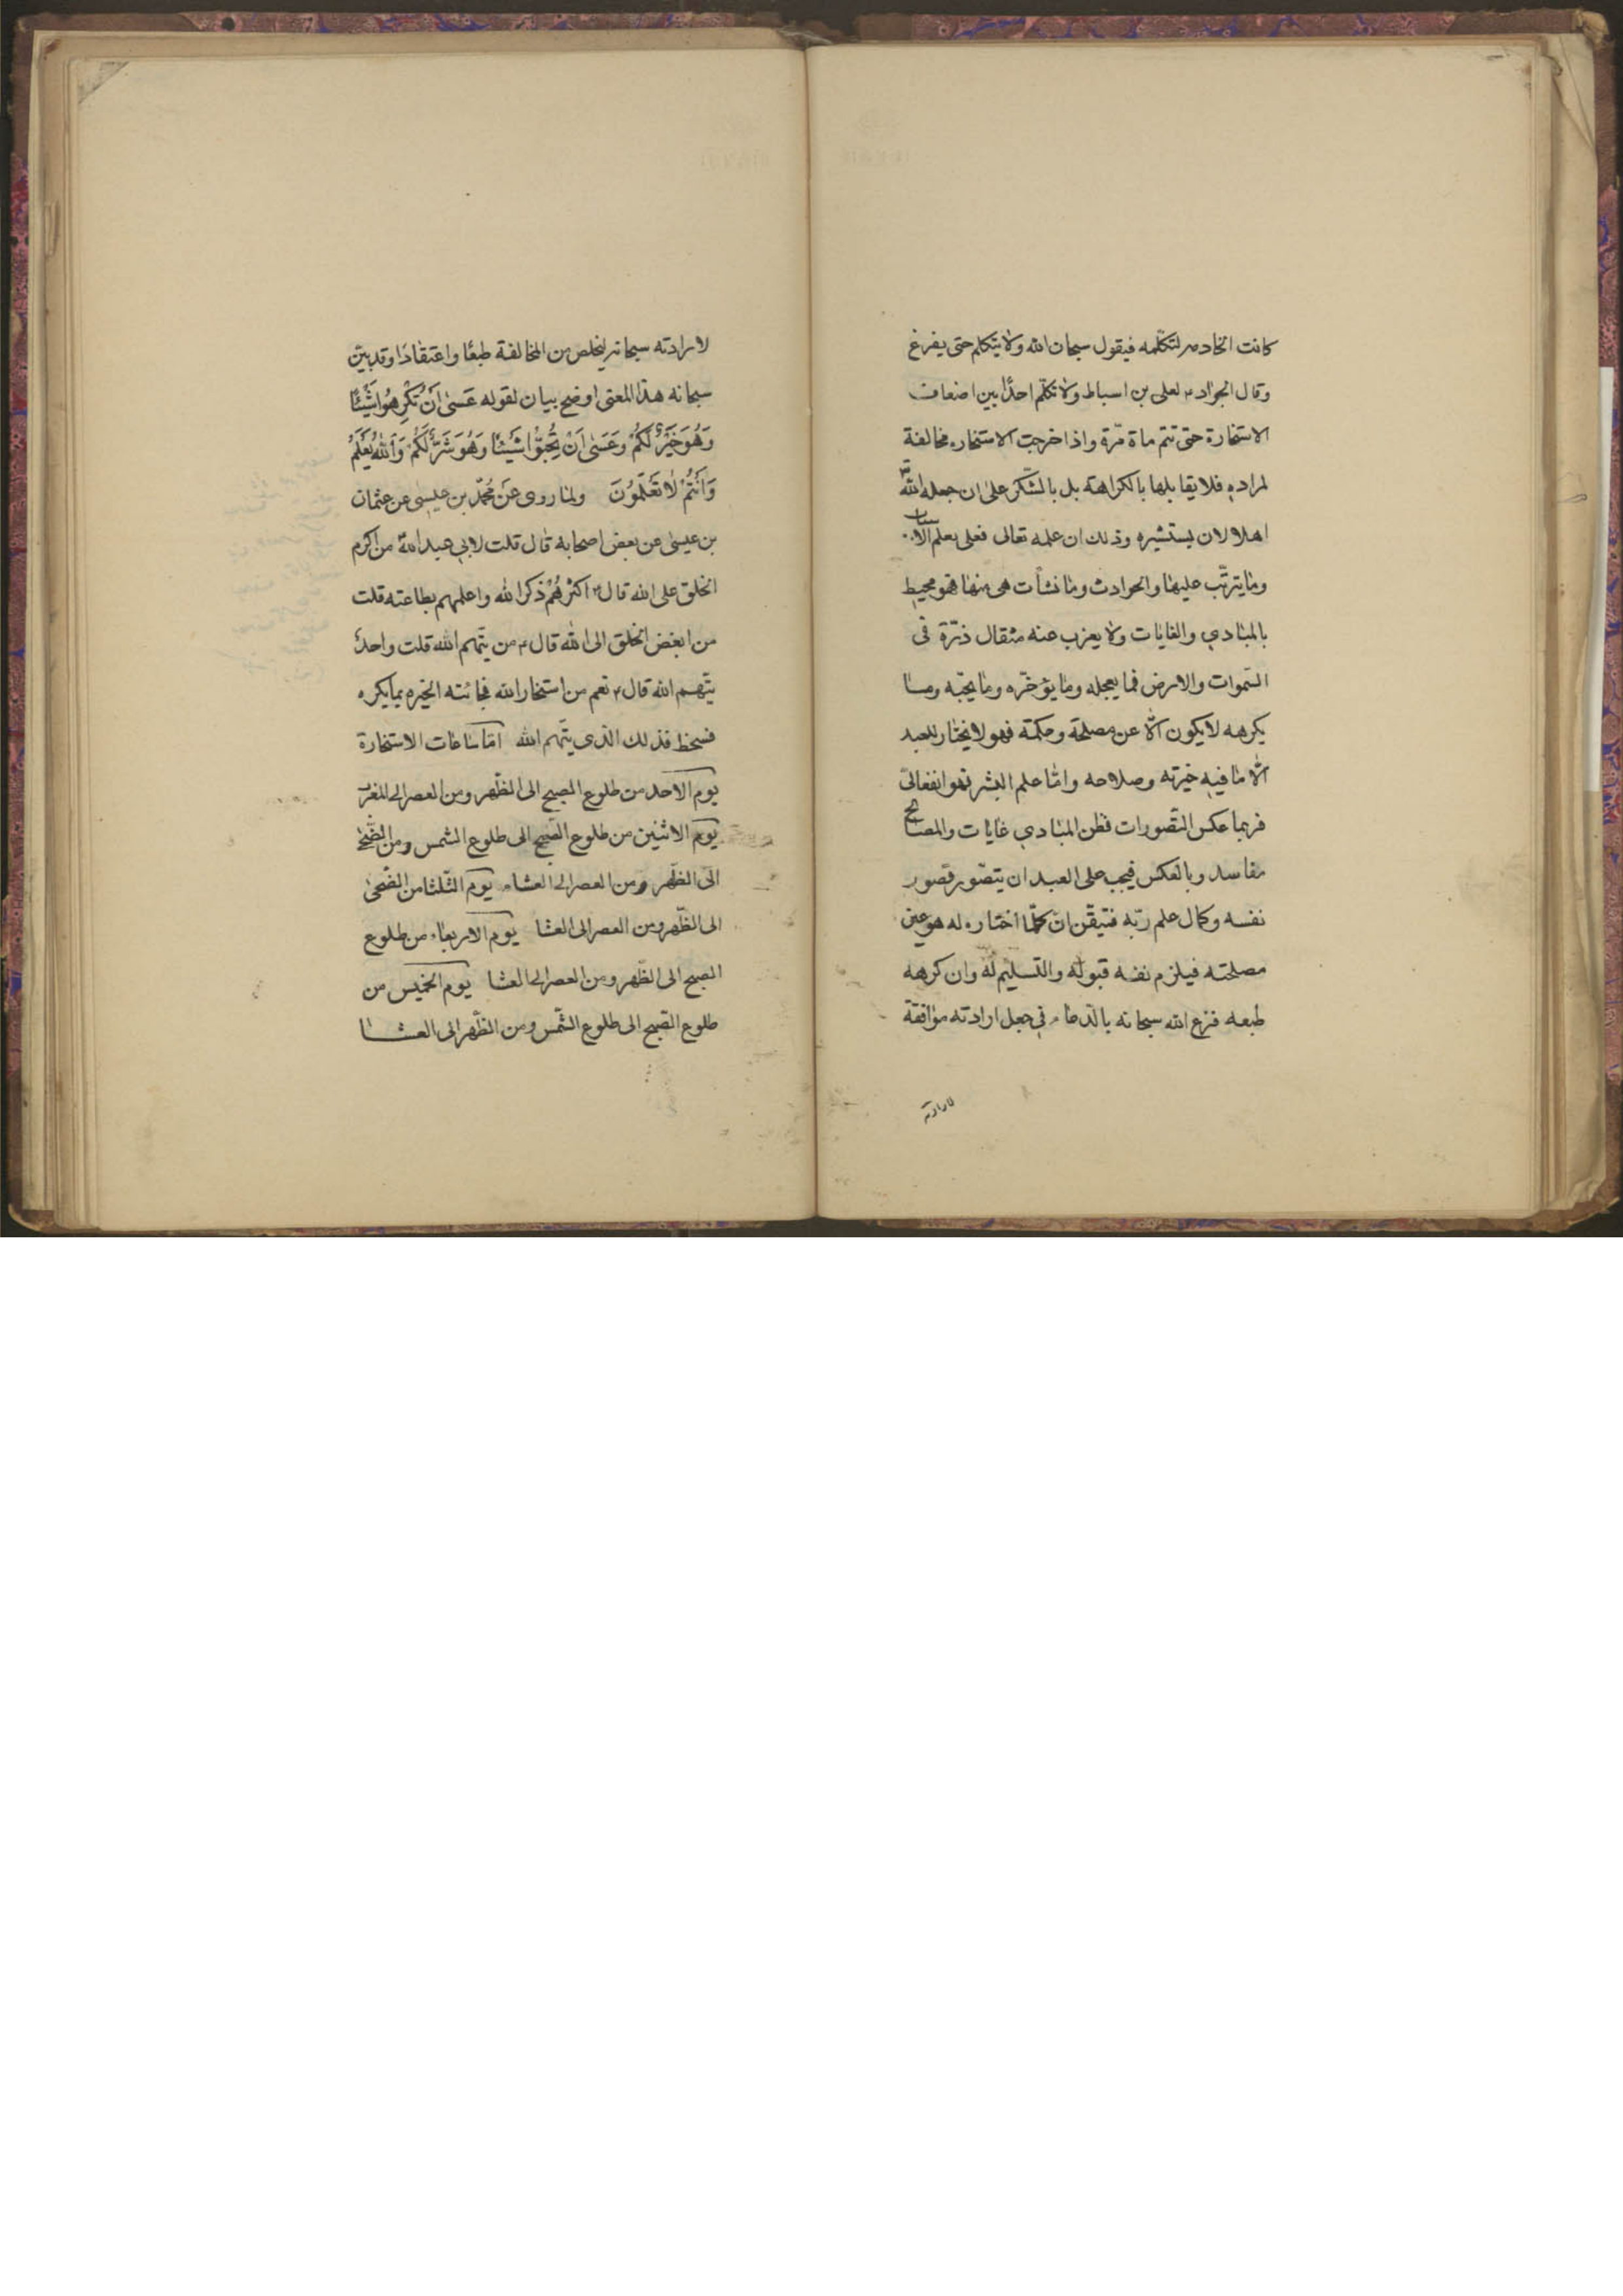 كانت الخادمه لتكلّمه فيقول سبحان الله ولا يتكلم حتى يفرغ
وقال الجواد؏ لعلى بن اسباط ولا تكلّم احدًا بين اضعاف
الاستخارة حتى تتم ماة مرّة واذا خرجت الاستخاره مخالفة
لمراده فلا يقابلها بالكراهة بل بالشّكر على ان جعله الله
اهلا لان يستشيره وذلك ان علمه تعالى فعلى يعلم الاسباب
وما يترتّب عليها والحوادث وما نشأت هى منها فهو محيط
بالمبادي والغايات ولا يعزب عنه مثقال ذرّة فى
السّموات والارض فما يعجله وما يؤخّره وما يحبّه وما
يكرهه لا يكون الّا عن مصلحة وحكمة فهو لا يختار للعبد
الّا ما فيه خيرته وصلاحه وامّا علم البشر فهو انفعالىّ
فربما عكس التّصورات فظن المبادي غايات والمصالح
مفاسد وبالعكس فيجب على العبد ان يتصّور قصور
نفسه وكمال علم ربّه فتيقّن انّ كلّما اختاره له هو عين
مصلحته فيلزم نفسه قبوله والتسليم له وان كرهه
طبعه فزع الله سبحانه بالدّعاء في جعل ارادته موافقة
لارادته
لارادته سبحانه ليخلص من المخالفة طبعًا واعتقادًا وقد بيّن
سبحانه هذا المعنى اوضح بيان لقوله عَسىٰ اَنْ تَكْرِهُوا شَيْئًا
وَهُوَ خَيْرٌ لَكُمْ وَعَسَىٰ اَنْ تُحِبُّوْا شَيْئًا وَهُوَ شَرٌّ لَكُمْ وَاَللهُ يَعْلَمُ
وَاَنْتُمْ لٰا تَعْلَمُوْنَ ولما روى عَنْ مُحمّد بن عيسى عن عثمان
بن عيسىٰ عن بعض اصحابه قال قلت لابي عبد الله من اكرم
الخلق على الله قال؏ اكثرهُمْ ذكرا لله واعلمهم بطاعته قلت
من ابغض الخلق الى الله قال؏ من يتّهم الله قلت واحدٌ
يتّهم الله قال؏ نعم من استخار الله فجائته الخيره بما يكره
فسخط فذلك الّذى يتّهم الله امّا ساعات الاستخارة
يوم الاحد من طلوع الصبح الى الظّهر ومن العصر الى المغرب
يوم الاثنين من طلوع الصّبح الى طلوع الشمس ومن الضّحىٰ
الى الظّهر ومن العصر الى العشاء يوم الثّلثا من الضّحىٰ
الى الظّهر ومن العصر الى العشا يوم الاربعاء من طلوع
الصبح الى الظّهر ومن العصر الى العشا يوم الخميس من
طلوع الصّبح الى طلوع الشّمس ومن الظّهر الى العشا